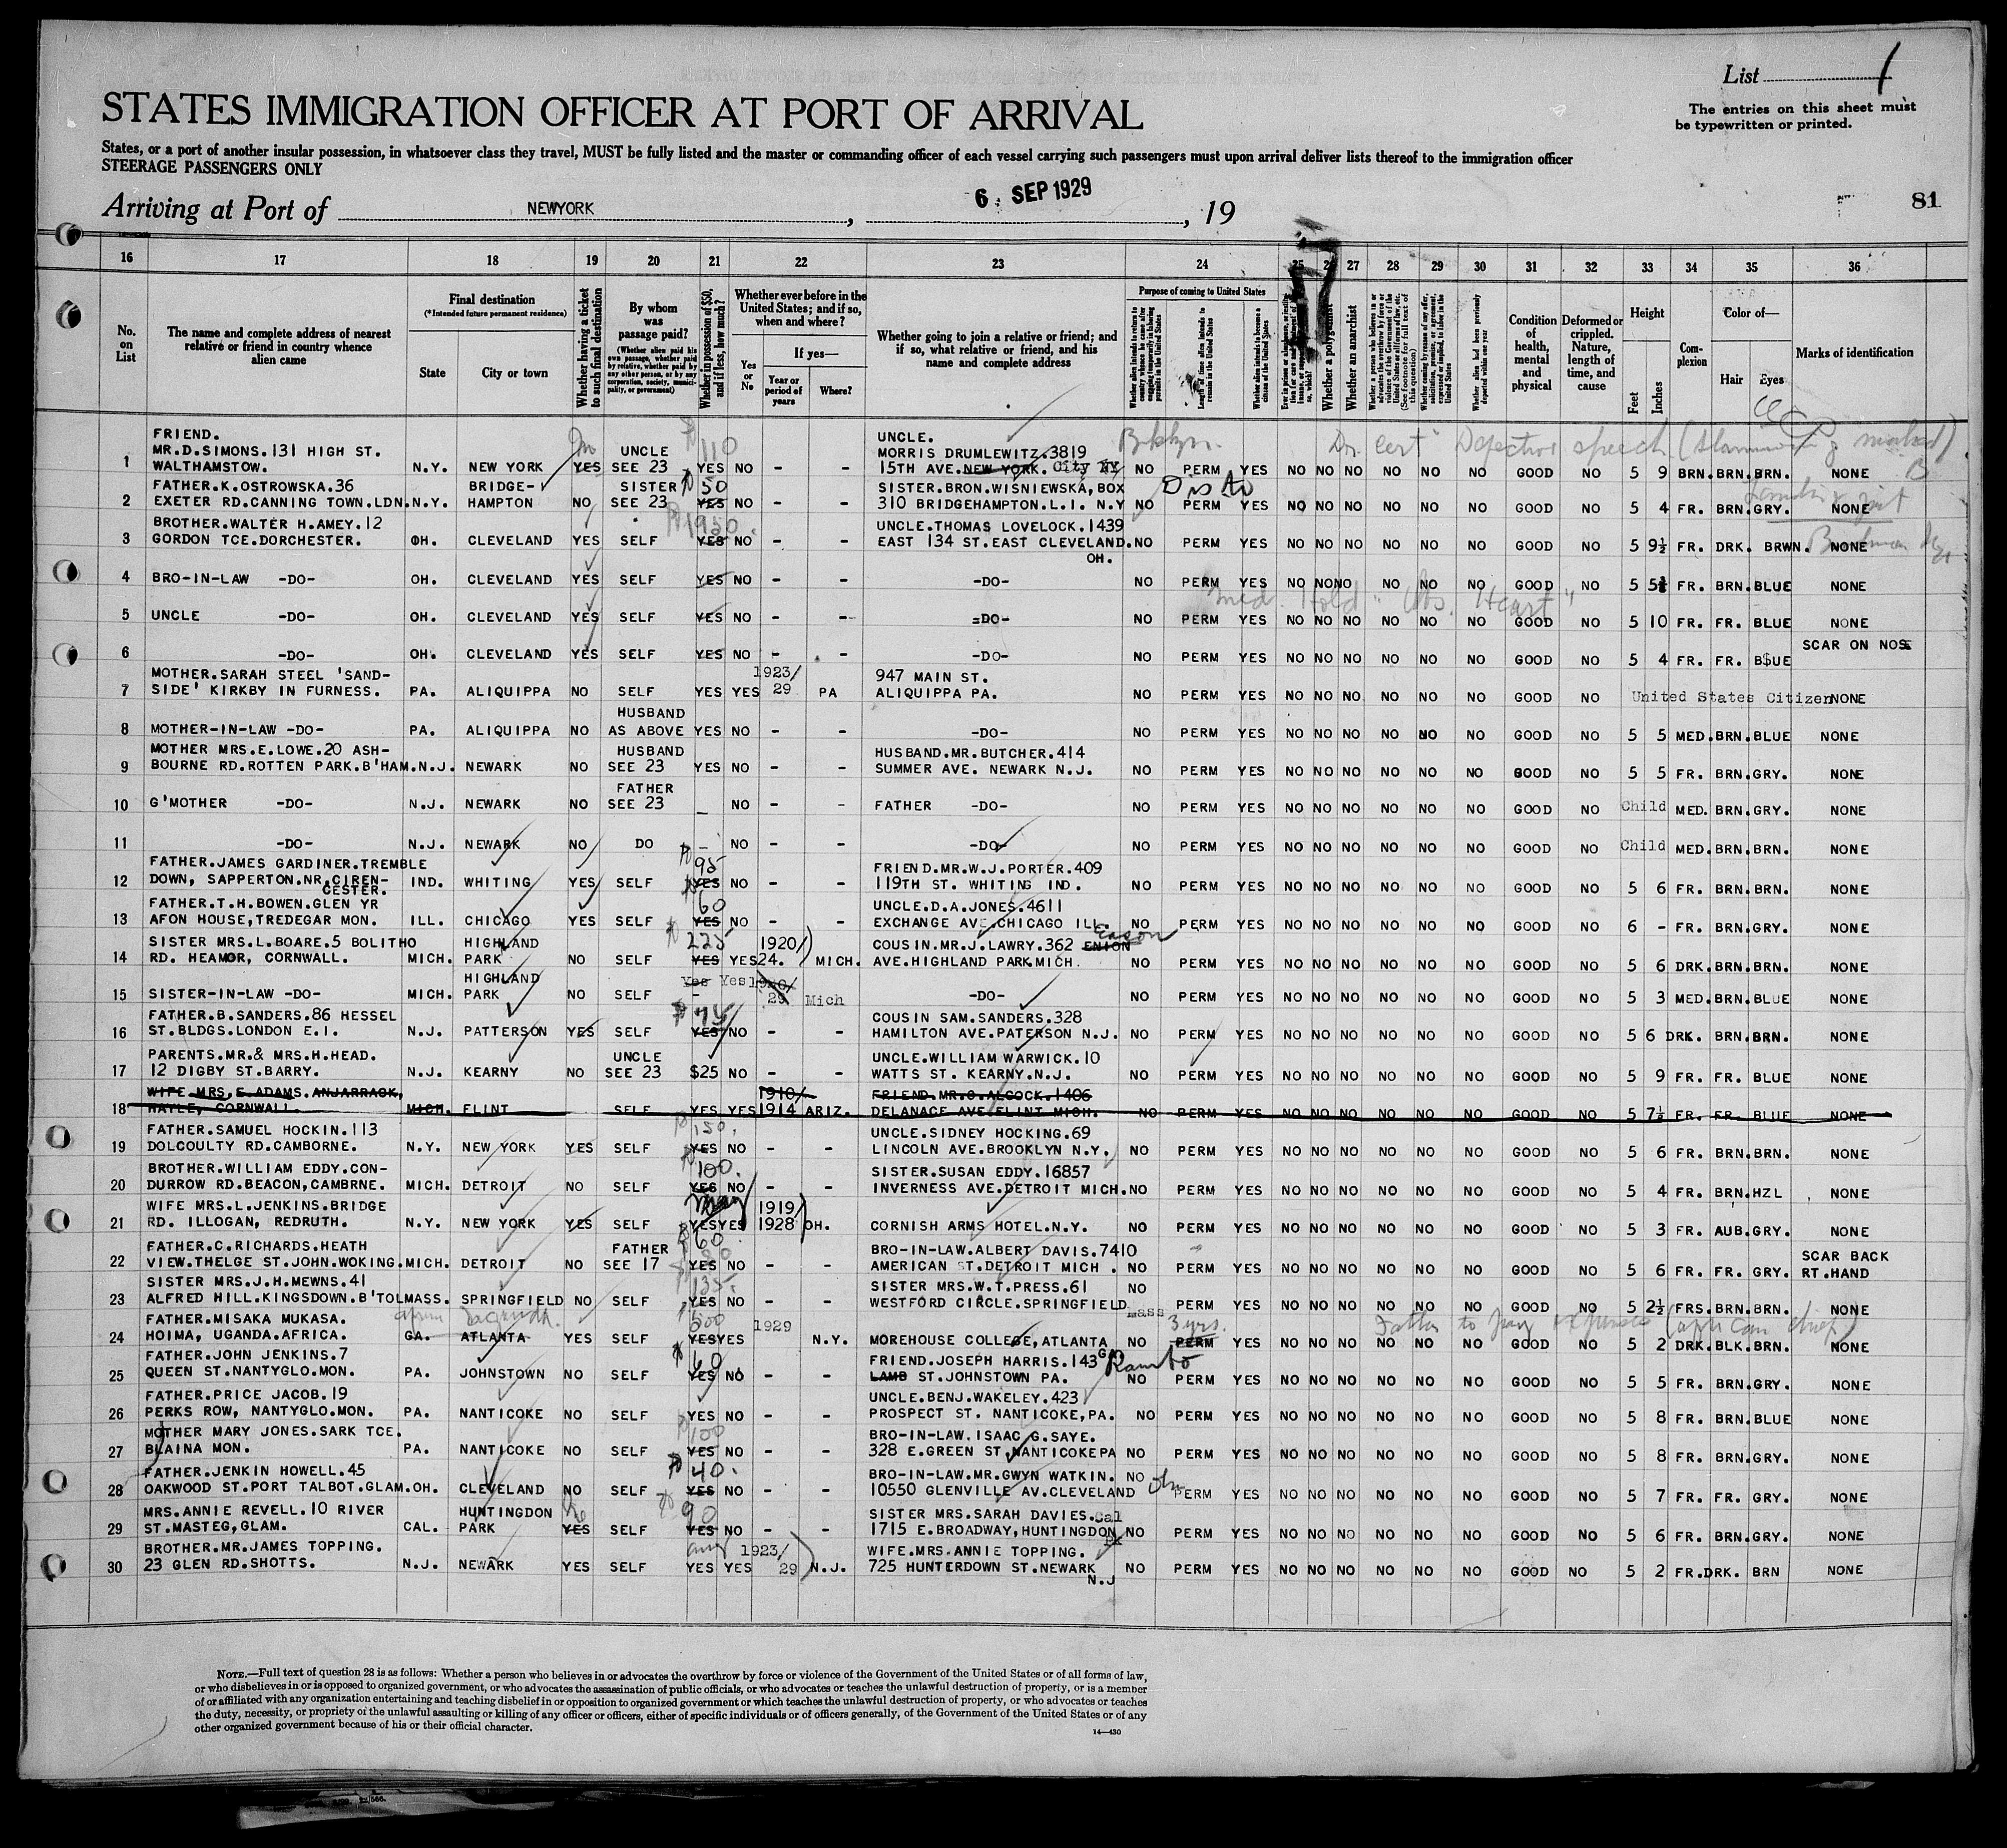 List 1
The entries on this sheet must
be typewritten or printed.
STATES IMMIGRATION OFFICER AT PORT OF ARRIVAL
States, or a port of another insular possession, in whatsoever class they travel, MUST be fully listed and the master or commanding officer of each vessel carrying such passengers must upon arrival deliver lists thereof to the immigration officer
STEERAGE PASSENGERS ONLY
Arriving at Port of NEWYORK, 6 SEP 1929, 19
81
16 17 18 19 20 21 22 23 24 25 26 27 28 29 30 31 32 33 34 35 36
No. on List
The name and complete address of nearest relative or friend in country whence alien came
Final destination
(*Intended future permanent residence)
State
City or town
Whether having a ticket to such final destination
By whom was passage paid?
(Whether alien paid his own passage, whether paid by relative, whether paid by any other person, or by any corporation, society, municipality, or government)
Whether in possession of $50, and if less, how much?
Whether ever before in the United States; and if so, when and where?
Yes or No
If yes—
Year or period of years
Where?
Whether going to join a relative or friend; and if so, what relative or friend, and his name and complete address
Purpose of coming to United States
Length of time alien intends to remain in the United States
Whether alien intends to become a citizen of the United States
Whether a polygamist
Whether an anarchist
Condition of health, mental and physical
Deformed or crippled. Nature, length of time, and cause
Height
Feet
Inches
Complexion
Color of—
Hair
Eyes
Marks of identification
FRIEND.
MR.D.SIMONS.131 HIGH ST. UNCLE 110 UNCLE. MORRIS DRUMLEWITZ.3819 Bklyn. Dr. cert Defective speech
1 WALTHAMSTOW. N.Y. NEW YORK YES SEE 23 YES NO - - 15TH AVE.NEW YORK. City NY NO PERM YES NO NO NO NO NO NO GOOD NO 5 9 BRN.BRN.BRN. NONE
FATHER.K.OSTROWSKA.36 BRIDGE- SISTER 50 SISTER.BRON.WISNIEWSKA,BOX
2 EXETER RD.CANNING TOWN.LDN.N.Y. HAMPTON NO SEE 23 YES NO - - 310 BRIDGEHAMPTON.L.I. N.Y NO PERM YES NO NO NO NO NO NO GOOD NO 5 4 FR. BRN.GRY. NONE
BROTHER.WALTER H.AMEY.12 1950. UNCLE.THOMAS LOVELOCK.1439
3 GORDON TCE.DORCHESTER. OH. CLEVELAND YES SELF YES NO - - EAST 134 ST.EAST CLEVELAND. NO PERM YES NO NO NO NO NO NO GOOD NO 5 9½ FR. DRK. BRWN. NONE
OH.
4 BRO-IN-LAW -DO- OH. CLEVELAND YES SELF YES NO - - -DO- NO PERM YES NO NO NO NO NO NO GOOD NO 5 5 FR. BRN.BLUE NONE
Med. Hold "Obs. Heart"
5 UNCLE -DO- OH. CLEVELAND YES SELF YES NO - - -DO- NO PERM YES NO NO NO NO NO NO GOOD NO 5 10 FR. FR. BLUE NONE
SCAR ON NOSE
6 -DO- OH. CLEVELAND YES SELF YES NO - - -DO- NO PERM YES NO NO NO NO NO NO GOOD NO 5 4 FR. FR. B$UE
MOTHER.SARAH STEEL 'SAND- 1923/ 947 MAIN ST.
7 SIDE' KIRKBY IN FURNESS. PA. ALIQUIPPA NO SELF YES YES 29 PA ALIQUIPPA PA. NO PERM YES NO NO NO NO NO NO GOOD NO United States Citizen NONE
HUSBAND
8 MOTHER-IN-LAW -DO- PA. ALIQUIPPA NO AS ABOVE YES NO - - -DO- NO PERM YES NO NO NO NO NO NO GOOD NO 5 5 MED.BRN.BLUE NONE
MOTHER MRS.E.LOWE.20 ASH- HUSBAND HUSBAND.MR.BUTCHER.414
9 BOURNE RD.ROTTEN PARK.B'HAM.N.J. NEWARK NO SEE 23 YES NO - - SUMMER AVE. NEWARK N.J. NO PERM YES NO NO NO NO NO NO GOOD NO 5 5 FR. BRN.GRY. NONE
FATHER
10 G'MOTHER -DO- N.J. NEWARK NO SEE 23 _ NO - - FATHER -DO- NO PERM YES NO NO NO NO NO NO GOOD NO Child MED. BRN.GRY. NONE
11 -DO- N.J. NEWARK NO DO - NO - - -DO- NO PERM YES NO NO NO NO NO NO GOOD NO Child MED.BRN.BRN. NONE
FATHER.JAMES GARDINER.TREMBLE 95 FRIEND.MR.W.J.PORTER.409
12 DOWN, SAPPERTON.NR.CIREN- IND. WHITING YES SELF YES NO - - 119TH ST. WHITING IND. NO PERM YES NO NO NO NO NO NO GOOD NO 5 6 FR. BRN.BRN. NONE
CESTER.
FATHER.T.H.BOWEN.GLEN YR 60 UNCLE.D.A.JONES.4611
13 AFON HOUSE,TREDEGAR MON. ILL. CHICAGO YES SELF YES NO - - EXCHANGE AVE.CHICAGO ILL. NO PERM YES NO NO NO NO NO NO GOOD NO 6 - FR. BRN.GRY. NONE
SISTER MRS.L.BOARE.5 BOLITHO HIGHLAND 225 1920/ COUSIN.MR.J.LAWRY.362 ENION Eason
14 RD. HEAMOR, CORNWALL. MICH. PARK NO SELF YES YES 24. MICH. AVE.HIGHLAND PARK.MICH. NO PERM YES NO NO NO NO NO NO GOOD NO 5 6 DRK.BRN.BRN. NONE
HIGHLAND Yes Yes 1920/
15 SISTER-IN-LAW -DO- MICH. PARK NO SELF - 29 Mich -DO- NO PERM YES NO NO NO NO NO NO GOOD NO 5 3 MED.BRN.BLUE NONE
FATHER.B.SANDERS.86 HESSEL 75 COUSIN SAM.SANDERS.328
16 ST.BLDGS.LONDON E.I. N.J. PATTERSON YES SELF YES NO - - HAMILTON AVE.PATERSON N.J. NO PERM YES NO NO NO NO NO NO GOOD NO 5 6 DRK. BRN.BRN. NONE
PARENTS.MR.& MRS.H.HEAD. UNCLE UNCLE.WILLIAM WARWICK.10
17 12 DIGBY ST.BARRY. N.J. KEARNY NO SEE 23 $25 NO - - WATTS ST. KEARNY.N.J. NO PERM YES NO NO NO NO NO NO GOOD NO 5 9 FR. FR. BLUE NONE
WIFE MRS.E.ADAMS.ANJARRACK, 1910/ FRIEND.MR.C.ALCOCK.1406
18 HAYLE, CORNWALL. MICH. FLINT SELF YES YES 1914 ARIZ. DELANACE AVE.FLINT MICH. NO PERM YES NO NO NO NO NO NO GOOD NO 5 7½ FR. FR. BLUE NONE
FATHER.SAMUEL HOCKIN.113 150. UNCLE.SIDNEY HOCKING.69
19 DOLCOULTY RD.CAMBORNE. N.Y. NEW YORK YES SELF YES NO - - LINCOLN AVE.BROOKLYN N.Y. NO PERM YES NO NO NO NO NO NO GOOD NO 5 6 FR. BRN.BRN. NONE
BROTHER.WILLIAM EDDY.CON- 100. SISTER.SUSAN EDDY.16857
20 DURROW RD.BEACON,CAMBRNE. MICH. DETROIT NO SELF YES NO - - INVERNESS AVE.DETROIT MICH. NO PERM YES NO NO NO NO NO NO GOOD NO 5 4 FR. BRN.HZL NONE
WIFE MRS.L.JENKINS.BRIDGE 1919/
21 RD. ILLOGAN, REDRUTH. N.Y. NEW YORK YES SELF YES YES 1928 OH. CORNISH ARMS HOTEL.N.Y. NO PERM YES NO NO NO NO NO NO GOOD NO 5 3 FR. AUB.GRY. NONE
FATHER.C.RICHARDS.HEATH FATHER 60. BRO-IN-LAW.ALBERT DAVIS.7410 SCAR BACK
22 VIEW.THELGE ST.JOHN.WOKING.MICH. DETROIT NO SEE 17 YES NO - - AMERICAN ST.DETROIT MICH . NO PERM YES NO NO NO NO NO NO GOOD NO 5 6 FR. FR. GRY. RT.HAND
SISTER MRS.J.H.MEWNS.41 135. SISTER MRS.W.T.PRESS.61 NO
23 ALFRED HILL.KINGSDOWN.B'TOL MASS. SPRINGFIELD NO SELF YES NO - - WESTFORD CIRCLE.SPRINGFIELD mass PERM YES NO NO NO NO NO NO GOOD NO 5 2½ FRS.BRN.BRN. NONE
FATHER.MISAKA MUKASA. 500 1929 3 yrs. Father to pay expenses (african chief)
24 HOIMA, UGANDA.AFRICA. GA. ATLANTA YES SELF YES YES N.Y. MOREHOUSE COLLEGE,ATLANTA GA NO PERM YES NO NO NO NO NO NO GOOD NO 5 2 DRK.BLK.BRN. NONE
FATHER.JOHN JENKINS.7 60 FRIEND.JOSEPH HARRIS.143
25 QUEEN ST.NANTYGLO.MON. PA. JOHNSTOWN NO SELF YES NO - - LAMB ST.JOHNSTOWN PA. NO PERM YES NO NO NO NO NO NO GOOD NO 5 5 FR. BRN.GRY. NONE
FATHER.PRICE JACOB.19 UNCLE.BENJ.WAKELEY.423
26 PERKS ROW, NANTYGLO.MON. PA. NANTICOKE NO SELF YES NO - - PROSPECT ST. NANTICOKE,PA. NO PERM YES NO NO NO NO NO NO GOOD NO 5 8 FR. BRN.BLUE NONE
MOTHER MARY JONES.SARK TCE. 100 BRO-IN-LAW.ISAAC G.SAYE.
27 BLAINA MON. PA. NANTICOKE NO SELF YES NO - - 328 E.GREEN ST.NANTICOKE PA NO PERM YES NO NO NO NO NO NO GOOD NO 5 8 FR. BRN.GRY. NONE
FATHER.JENKIN HOWELL.45 40. BRO-IN-LAW.MR.GWYN WATKIN. NO
28 OAKWOOD ST.PORT TALBOT.GLAM.OH. CLEVELAND NO SELF YES NO - - 10550 GLENVILLE AV.CLEVELAND PERM YES NO NO NO NO NO NO GOOD NO 5 7 FR. FR. GRY. NONE
MRS.ANNIE REVELL.10 RIVER HUNTINGDON No 90 SISTER MRS.SARAH DAVIES. Cal
29 ST.MASTEG,GLAM. CAL. PARK YES SELF YES NO - - 1715 E.BROADWAY,HUNTINGDON PK NO PERM YES NO NO NO NO NO NO GOOD NO 5 6 FR. BRN.GRY. NONE
BROTHER.MR.JAMES TOPPING. 1923/ WIFE.MRS.ANNIE TOPPING.
30 23 GLEN RD.SHOTTS. N.J. NEWARK YES SELF YES YES 29 N.J. 725 HUNTERDOWN ST.NEWARK NO PERM YES NO NO NO NO NO NO GOOD NO 5 2 FR.DRK. BRN NONE
N.J
NOTE.—Full text of question 28 is as follows: Whether a person who believes in or advocates the overthrow by force or violence of the Government of the United States or of all forms of law,
or who disbelieves in or is opposed to organized government, or who advocates the assassination of public officials, or who advocates or teaches the unlawful destruction of property, or is a member
of or affiliated with any organization entertaining and teaching disbelief in or opposition to organized government or which teaches the unlawful destruction of property, or who advocates or teaches
the duty, necessity, or propriety of the unlawful assaulting or killing of any officer or officers, either of specific individuals or of officers generally, of the Government of the United States or of any
other organized government because of his or their official character.
14—430